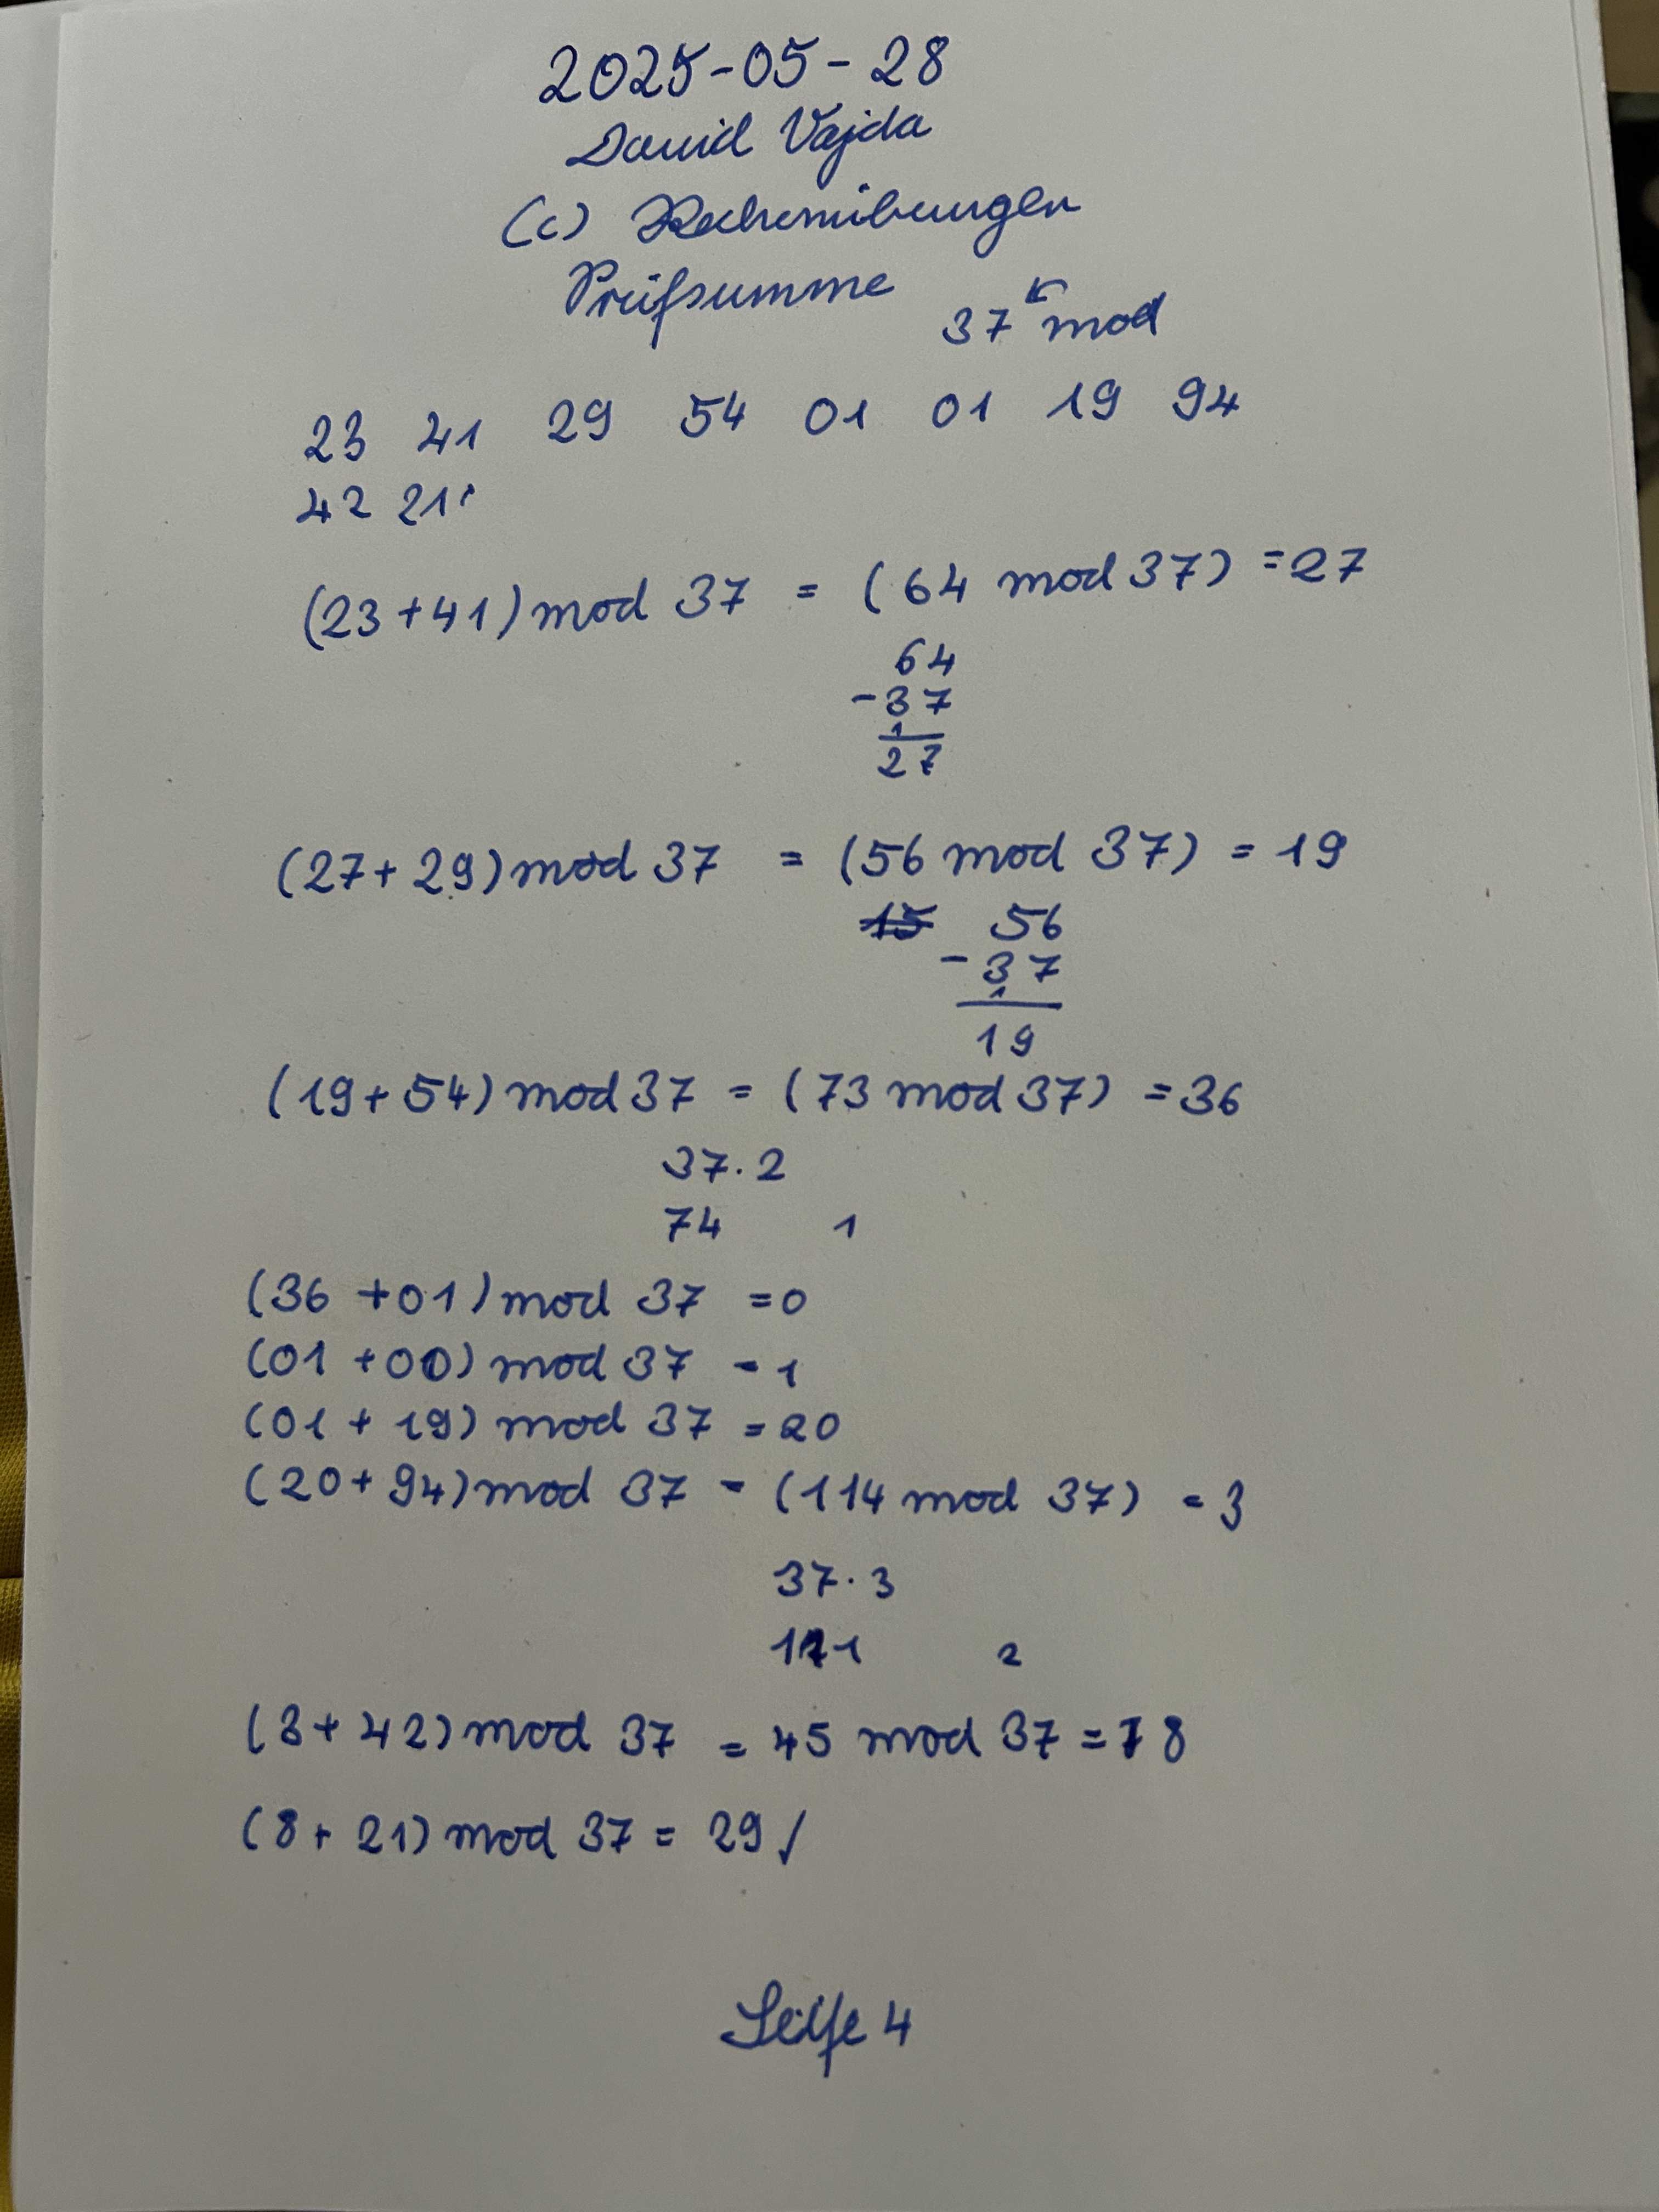 2025-05-28
David Vajda
(c) Rechenübungen
Prüfsumme
37 mod
23 41 29 54 01 01 19 94
42 21
(23+41) mod 37 = (64 mod 37) = 27
64
-37
1
27
(27+29) mod 37 = (56 mod 37) = 19
15 56
-37
1
19
(19+54) mod 37 = (73 mod 37) = 36
37·2
74 1
(36+01) mod 37 = 0
(01+00) mod 37 = 1
(01+19) mod 37 = 20
(20+94) mod 37 = (114 mod 37) = 3
37·3
111 2
(3+42) mod 37 = 45 mod 37 = 8
(8+21) mod 37 = 29
4